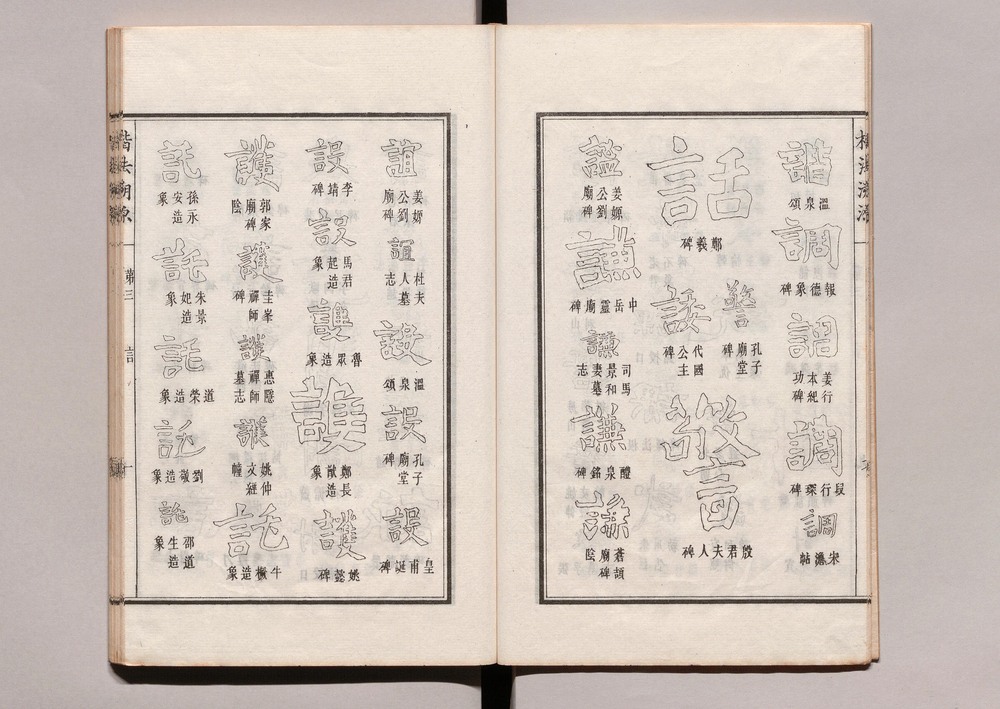 楷法溯源
諧
溫泉頌
調
報德象碑
調
姜行本紀功碑
調
段行琛碑
調
宋儋帖
話
鄭羲碑
警
孔子廟堂碑
諉
代國公主碑
警
殷君夫人碑
謐
姜嫄公劉廟碑
謙
中岳靈廟碑
謙
司馬景和妻墓志
謙
醴泉銘碑
謙
蒼頡廟碑陰
誼
姜嫄公劉廟碑
誼
杜夫人墓志
設
溫泉頌
設
孔子廟堂碑
設
皇甫誕碑
設
李靖碑
設
馬君起造象
護
魯眾造象
護
鄭長猷造象
護
姚懿碑
護
郭家廟碑陰
護
圭峯禪師碑
護
惠隱禪師墓志
護
姚仲文經幢
託
牛橛造象
託
孫永安造象
託
朱景妃造象
託
道榮造象
託
劉璥造象
託
邵道生造象
楷法溯源
第三
言